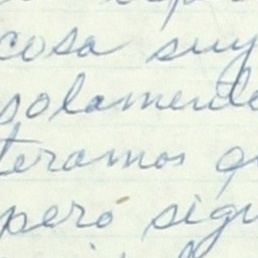 cosa suy
solamente
teramos q
pero sigu